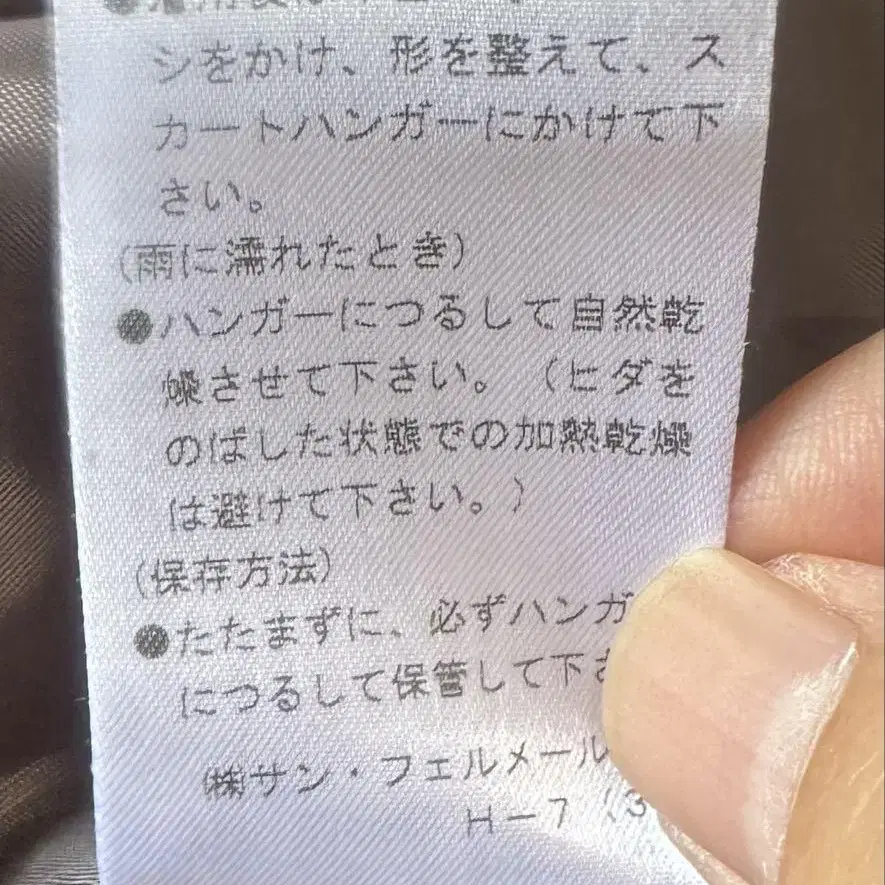 シをかけ、形を整えて、ス
カートハンガーにかけて下
さい。
(雨に濡れたとき)
●ハンガーにつるして自然乾
燥させて下さい。(ヒダを
のばした状態での加熱乾燥
は避けて下さい。)
(保存方法)
●たたまずに、必ずハンガ
につるして保管して下さ
㈱サン・フェルメール
H-7 (3